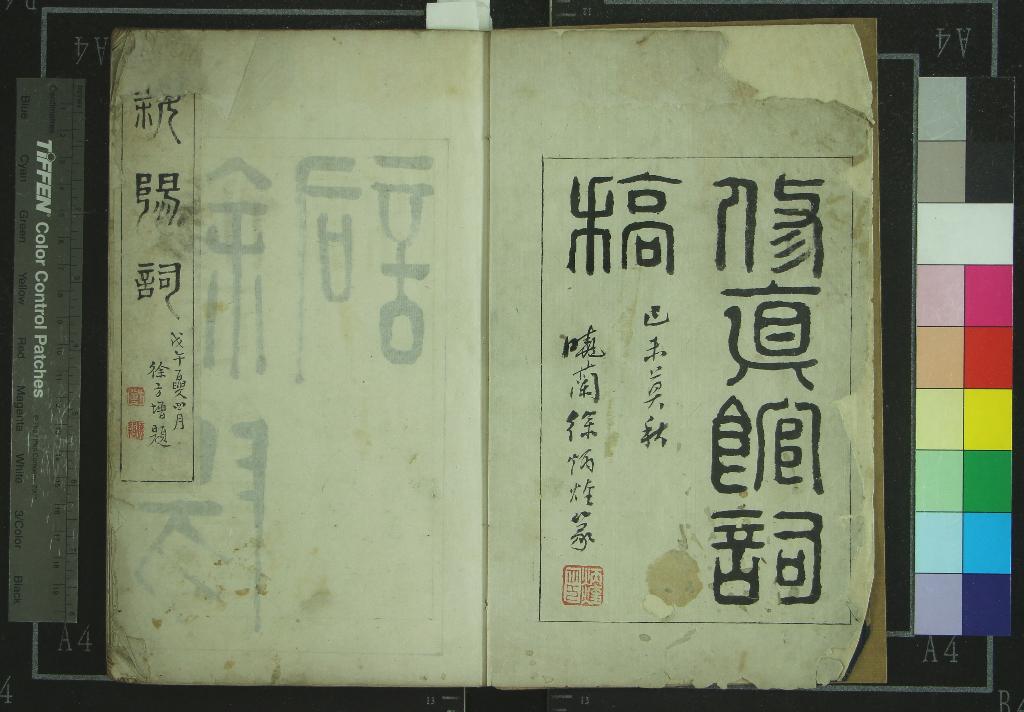 修真館詞
稿
己未莫秋
曉蘭徐炳烇篆
陽詞
戊午夏四月
徐方增題
TIFFEN Color Control Patches
Blue Cyan Green Yellow Red Magenta White 3/Color Black
A4
A4
A4
A4